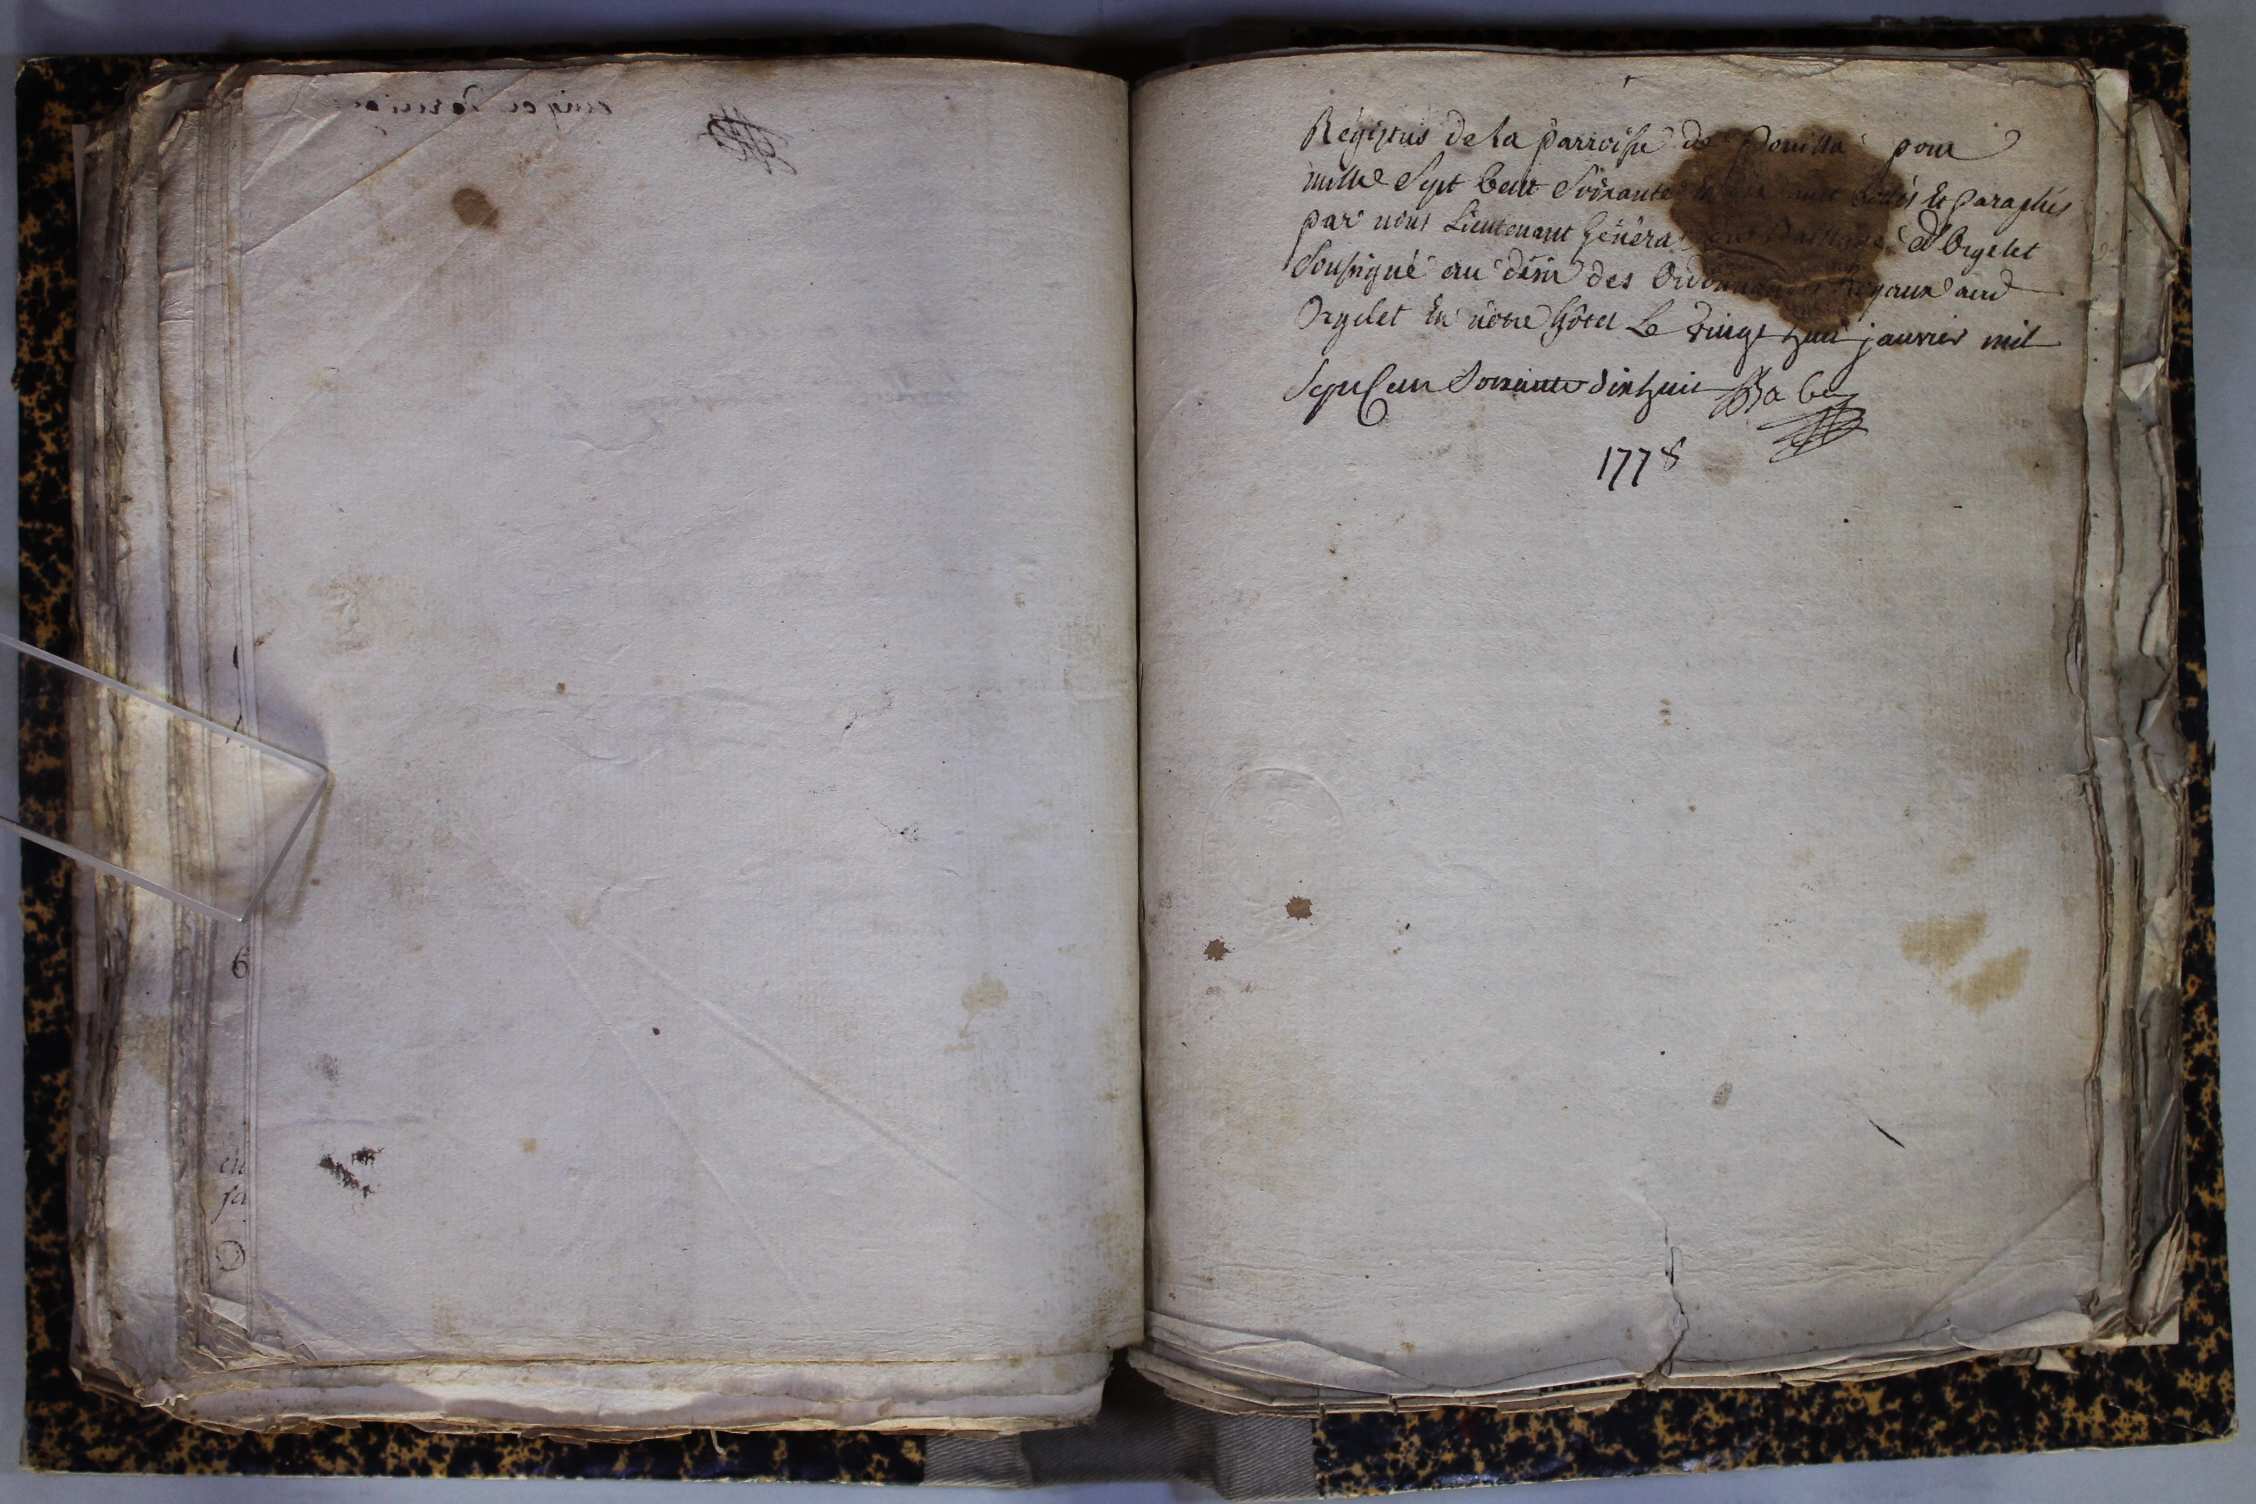 Registres de la parroisse de pour
mille Sept Cent Soixante et dix huit Cottés et paraphés
par nous Lieutenant Général au Bailliage d'Orgelet
Soussigné au désir des Ordonnances Royaux aud
Orgelet En nôtre hôtel Le vingt huit janvier mil
Sept Cent Soixante dix huit Babey
1778
6
en
D